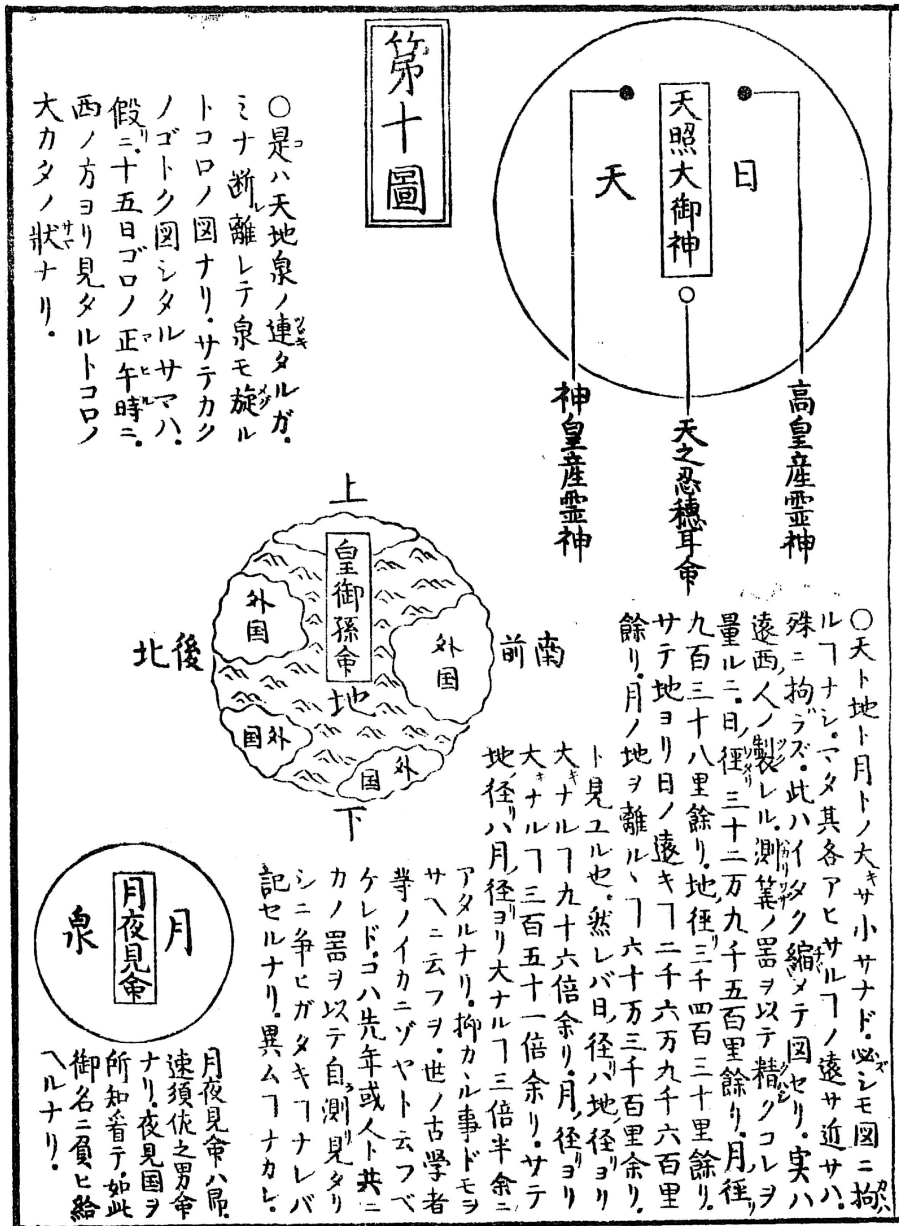 第十圖
日
天
天照大御神
高皇産霊神
天之忍穂耳命
神皇産霊神
○是ハ天地泉ノ連タルガ.
ミナ断離レテ泉モ旋ル
トコロノ図ナリ.サテカク
ノゴトク図シタルサマハ.
假ニ.十五日ゴロノ正午時ニ.
西ノ方ヨリ見タルトコロノ
大カタノ狀ナリ.
上
皇御孫命
地
外国
外国
外国
外国
前南
後北
下
○天ト地ト月トノ大キサ小サナド.必シモ図ニ拘
ルヿナシ.マタ其各アヒサルヿノ遠サ近サハ.
殊ニ拘ラズ.此ハイタク縮メテ図セリ.実ハ
遠西ノ人ノ製レル.測算ノ噐ヲ以テ精クコレヲ
量ルニ.日ノ徑リ三十二万九千五百里餘リ.月ノ徑リ
九百三十八里餘リ.地ノ徑リ三千四百三十里餘リ.
サテ地ヨリ日ノ遠キヿ二千六万九千六百里
餘リ.月ノ地ヲ離ルヽヿ六十万三千百里余リ.
ト見ユル也.然レバ日ノ径リハ地ノ径リヨリ
大キナルヿ九十六倍余リ.月ノ径リヨリ
大キナルヿ三百五十一倍余リ.サテ
地ノ径リハ月ノ径リヨリ大ナルヿ三倍半余ニ
アタルナリ.抑カヽル事ドモヲ
サヘニ云フヲ.世ノ古学者
等ノイカニゾヤト云フベ
ケレド.コハ先年或人ト共ニ
カノ噐ヲ以テ自ラ測リ見タリ
シニ争ヒガタキヿナレバ
記セルナリ.異ムヿナカレ.
月
泉
月夜見命
月夜見命ハ即.
速須佐之男命
ナリ.夜見国ヲ
所知看テ.如此
御名ニ負ヒ給
ヘルナリ.